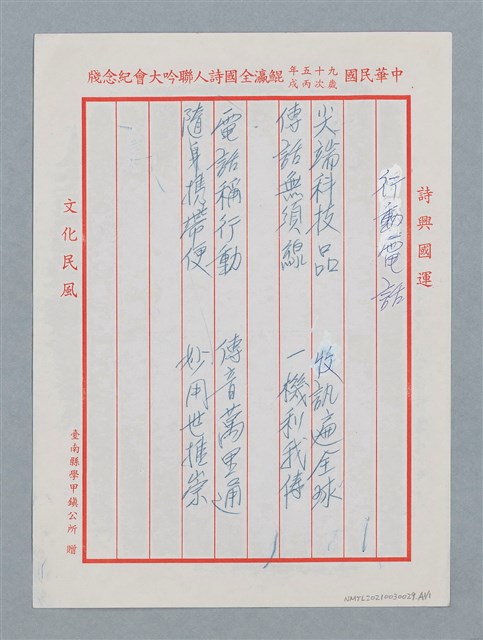 中華民國九十五年歲次丙戌鯤瀛全國詩人聯吟大會紀念牋
詩興國運
行動電話
尖端科技品 收訊遍全球
傳話無須線 一機利我傳
電話稱行動 傳音萬里通
隨身携帶便 妙用世推崇
文化民風
臺南縣學甲鎮公所 贈
NMTL20210030029.AV1